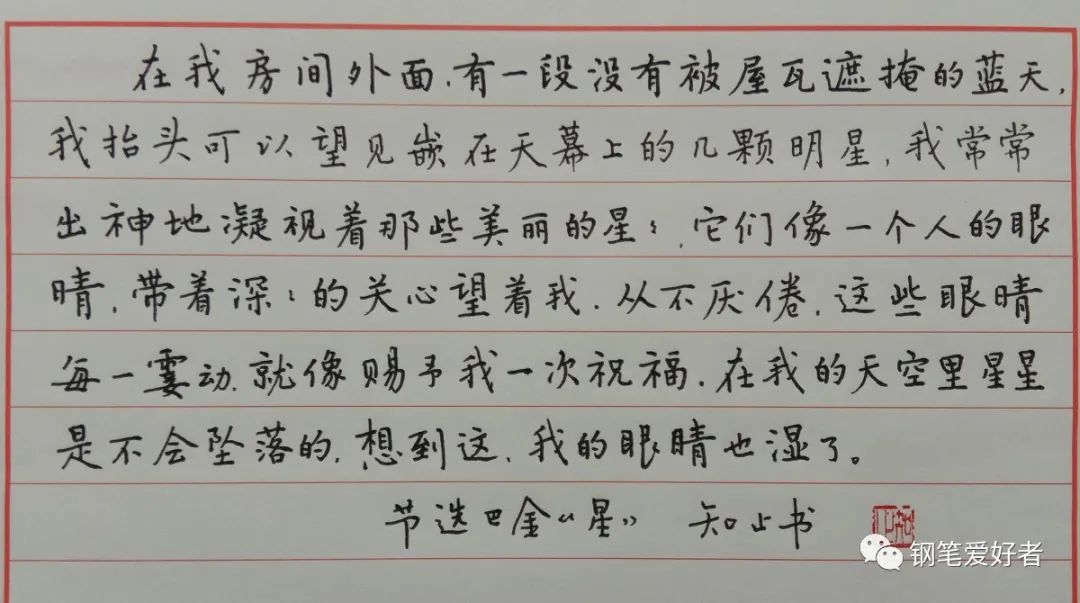 在我房间外面,有一段没有被屋瓦遮掩的蓝天,
我抬头可以望见嵌在天幕上的几颗明星,我常常
出神地凝视着那些美丽的星星,它们像一个人的眼
睛,带着深深的关心望着我.从不厌倦,这些眼睛
每一霎动,就像赐予我一次祝福.在我的天空里星星
是不会坠落的,想到这,我的眼睛也湿了。
节选巴金“星” 知止书
钢笔爱好者